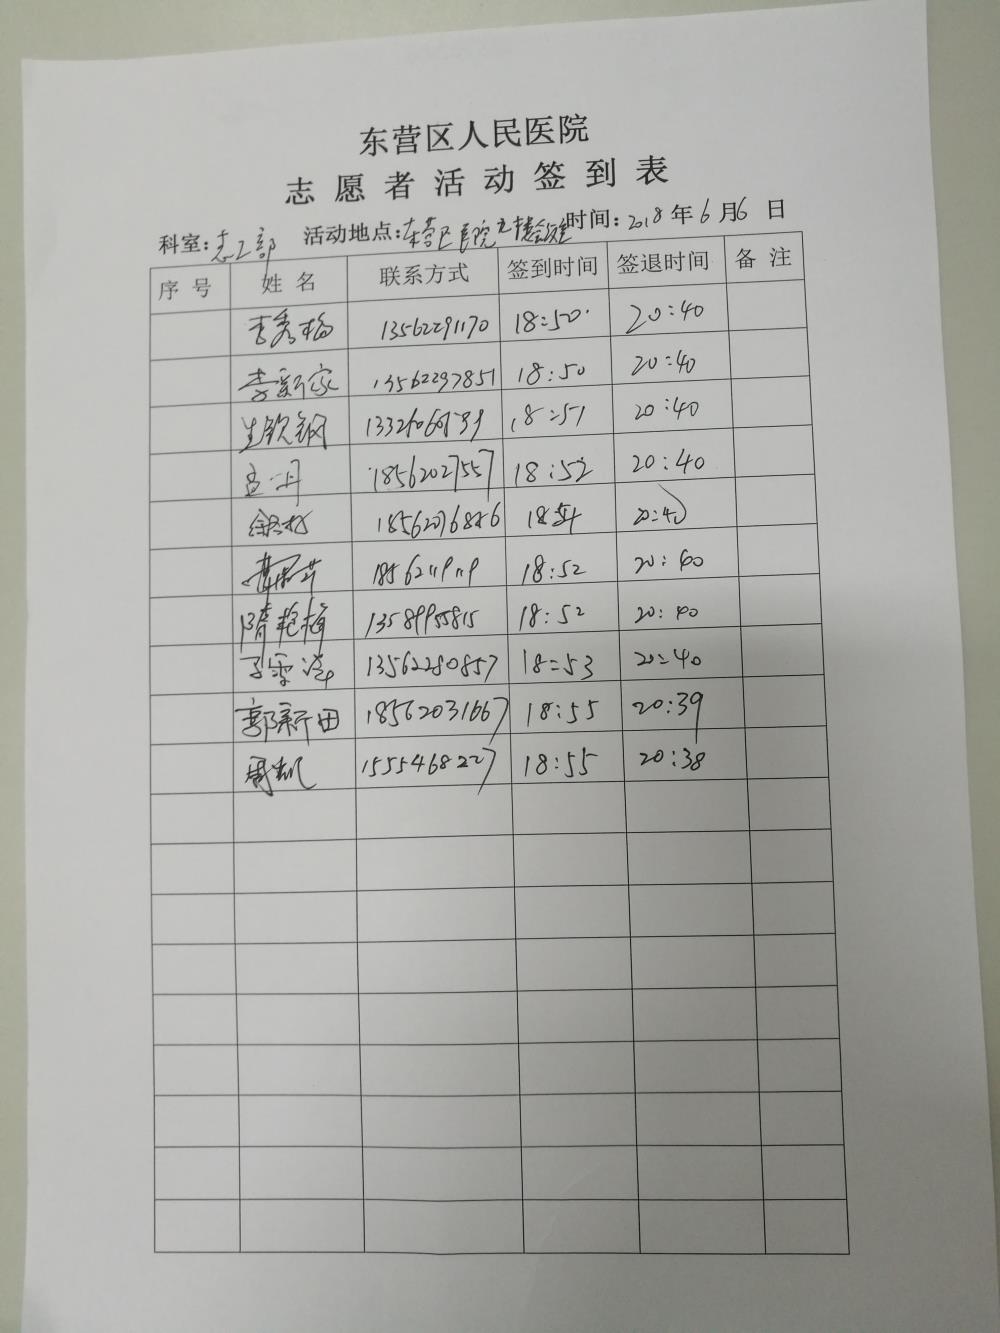 东营区人民医院
志愿者活动签到表
科室：志工部 活动地点：东营区医院 时间：2018年6月6日
序号 姓名 联系方式 签到时间 签退时间 备注
李秀梅 13562291170 18:50 20:40
李新家 13562297851 18:50 20:40
生钦钢 18:51 20:40
孟丹 18562027557 18:52 20:40
18562076826 20:40
18562119119 18:52 20:40
隋艳梅 13589955815 18:52 20:40
13562280857 18:53 20:40
郭新田 18562031667 18:55 20:39
周凯 15554682227 18:55 20:38